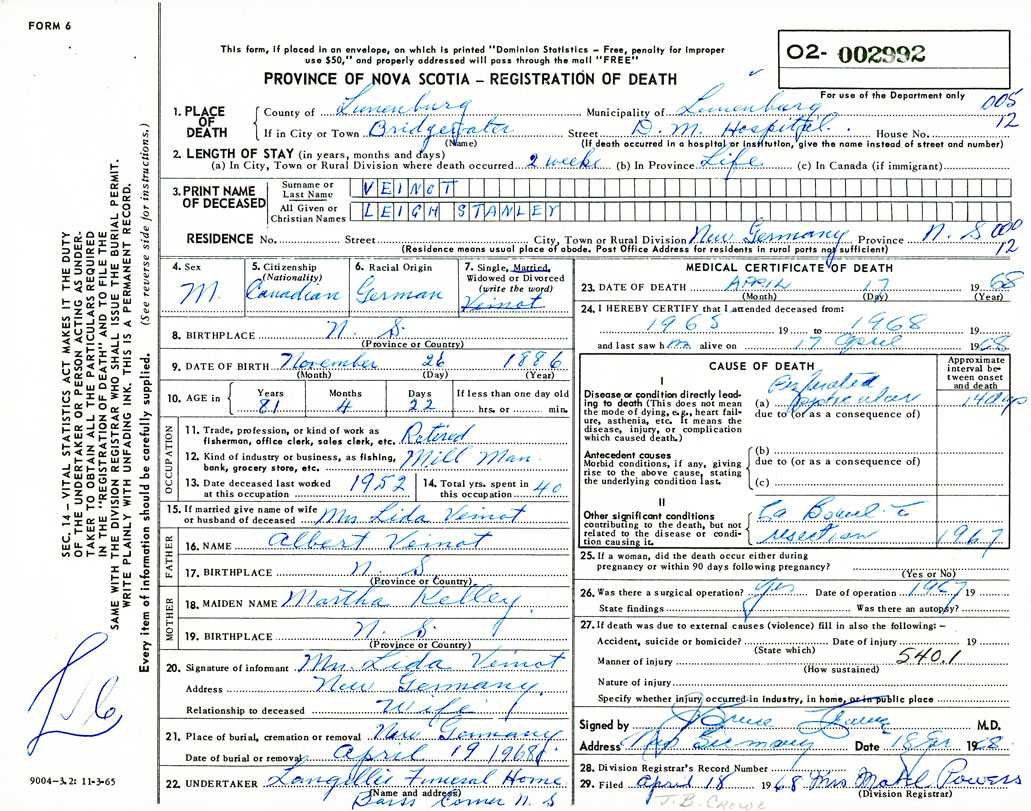 FORM 6
This form, if placed in an envelope, on which is printed "Dominion Statistics – Free, penalty for improper
use $50," and properly addressed will pass through the mail "FREE"
PROVINCE OF NOVA SCOTIA – REGISTRATION OF DEATH
02- 002992
For use of the Department only
005
12
1. PLACE OF DEATH
County of Lunenburg Municipality of Lunenburg
If in City or Town Bridgewater Street D. M. Hospital. House No.
(Name) (If death occurred in a hospital or institution, give the name instead of street and number)
2. LENGTH OF STAY (in years, months and days)
(a) In City, Town or Rural Division where death occurred 2 weeks (b) In Province Life (c) In Canada (if immigrant)
3. PRINT NAME OF DECEASED
Surname or Last Name VEINOT
All Given or Christian Names LEIGH STANLEY
RESIDENCE No. Street City, Town or Rural Division New Germany Province N. S 000
(Residence means usual place of abode. Post Office Address for residents in rural parts not sufficient) 12
4. Sex
M.
5. Citizenship
(Nationality)
Canadian
6. Racial Origin
German
7. Single, Married,
Widowed or Divorced
(write the word)
Veinot
8. BIRTHPLACE N. S.
(Province or Country)
9. DATE OF BIRTH November 26 1886
(Month) (Day) (Year)
10. AGE in
Years Months Days If less than one day old
81 4 22 hrs. or min.
OCCUPATION
11. Trade, profession, or kind of work as
fisherman, office clerk, sales clerk, etc. Retired
12. Kind of industry or business, as fishing,
bank, grocery store, etc. Mill Man
13. Date deceased last worked
at this occupation 1952
14. Total yrs. spent in
this occupation 40
15. If married give name of wife
or husband of deceased Mrs Lida Veinot
FATHER
16. NAME Albert Veinot
17. BIRTHPLACE N. S.
(Province or Country)
MOTHER
18. MAIDEN NAME Martha Kelley
19. BIRTHPLACE N. S.
(Province or Country)
20. Signature of informant Mrs. Lida Veinot
Address New Germany,
Relationship to deceased Wife
21. Place of burial, cremation or removal New Germany
Date of burial or removal April 19 1968
22. UNDERTAKER Funeral Home
(Name and address)
Corner N. S
MEDICAL CERTIFICATE OF DEATH
23. DATE OF DEATH APRIL 17 1968
(Month) (Day) (Year)
24. I HEREBY CERTIFY that I attended deceased from:
1965 19 to 1968 19
and last saw him alive on 17 April 1968
CAUSE OF DEATH
Approximate
interval be-
tween onset
and death
I
Disease or condition directly lead-
ing to death (This does not mean
the mode of dying, e.g., heart fail-
ure, asthenia, etc. It means the
disease, injury, or complication
which caused death.)
Perforated
(a) peptic ulcer 14 days
due to (or as a consequence of)
Antecedent causes
Morbid conditions, if any, giving
rise to the above cause, stating
the underlying condition last.
(b)
due to (or as a consequence of)
(c)
II
Other significant conditions
contributing to the death, but not
related to the disease or condi-
tion causing it.
Ca Bowel c̄
resection 1967
25. If a woman, did the death occur either during
pregnancy or within 90 days following pregnancy?
(Yes or No)
26. Was there a surgical operation? yes Date of operation 1967 19
State findings Was there an autopsy?
27. If death was due to external causes (violence) fill in also the following: –
Accident, suicide or homicide? Date of injury 19
(State which)
Manner of injury 540.1
(How sustained)
Nature of injury
Specify whether injury occurred in industry, in home, or in public place
Signed by M.D.
Address New Germany Date 18 Apr 1968
28. Division Registrar's Record Number
29. Filed April 18 1968 Mrs Powers
(Division Registrar)
J. B. CROWE
SEC. 14 – VITAL STATISTICS ACT MAKES IT THE DUTY
OF THE UNDERTAKER OR PERSON ACTING AS UNDER-
TAKER TO OBTAIN ALL THE PARTICULARS REQUIRED
IN THE "REGISTRATION OF DEATH" AND TO FILE THE
SAME WITH THE DIVISION REGISTRAR WHO SHALL ISSUE THE BURIAL PERMIT.
WRITE PLAINLY WITH UNFADING INK. THIS IS A PERMANENT RECORD.
Every item of information should be carefully supplied. (See reverse side for instructions.)
9004-3.2: 11-3-65